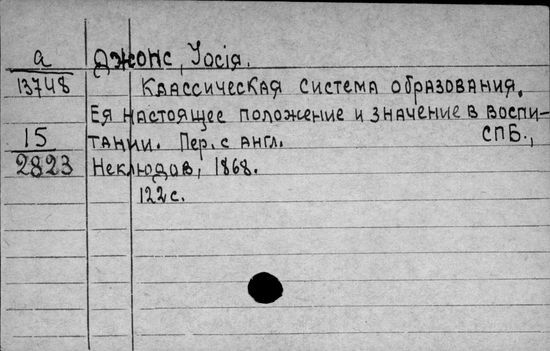 а Джонс, Iосiя.
13748 Классическая система образования.
Ея настоящее положение и значение в воспи-
15 тании. Пер. с англ. СПБ.,
2823 Неклюдов, 1868.
122 с.